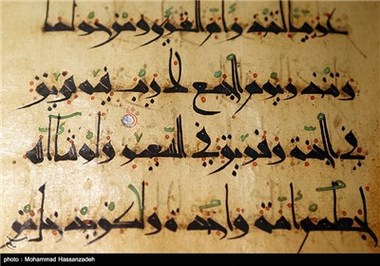 عربيا لتنذر ام القرى ومن حولها
وتنذر يوم الجمع لا ريب فيه فريق
في الجنة وفريق في السعير ولو شا الله
لجعلهم امة واحدة ولكن يدخل من
photo : Mohammad Hassanzadeh